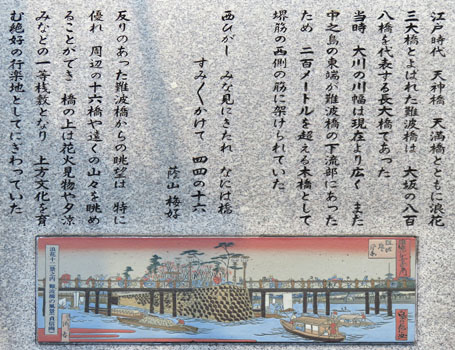 江戸時代 天神橋 天満橋とともに浪花
三大橋とよばれた難波橋は 大坂の八百
八橋を代表する長大橋であった
当時 大川の川幅は現在より広く また
中之島の東端が難波橋の下流部にあった
ため 二百メートルを超える木橋として
堺筋の西側の筋に架けられていた
西ひがし みな見にきたれ なには橋
すみ〱かけて 四四の十六
蔭山 梅好
反りのあった難波橋からの眺望は 特に
優れ 周辺の十六橋や遠くの山々を眺め
ることができ 橋の上は花火見物や夕涼
みなどの一等桟敷となり 上方文化を育
む絶好の行楽地としてにぎわっていた